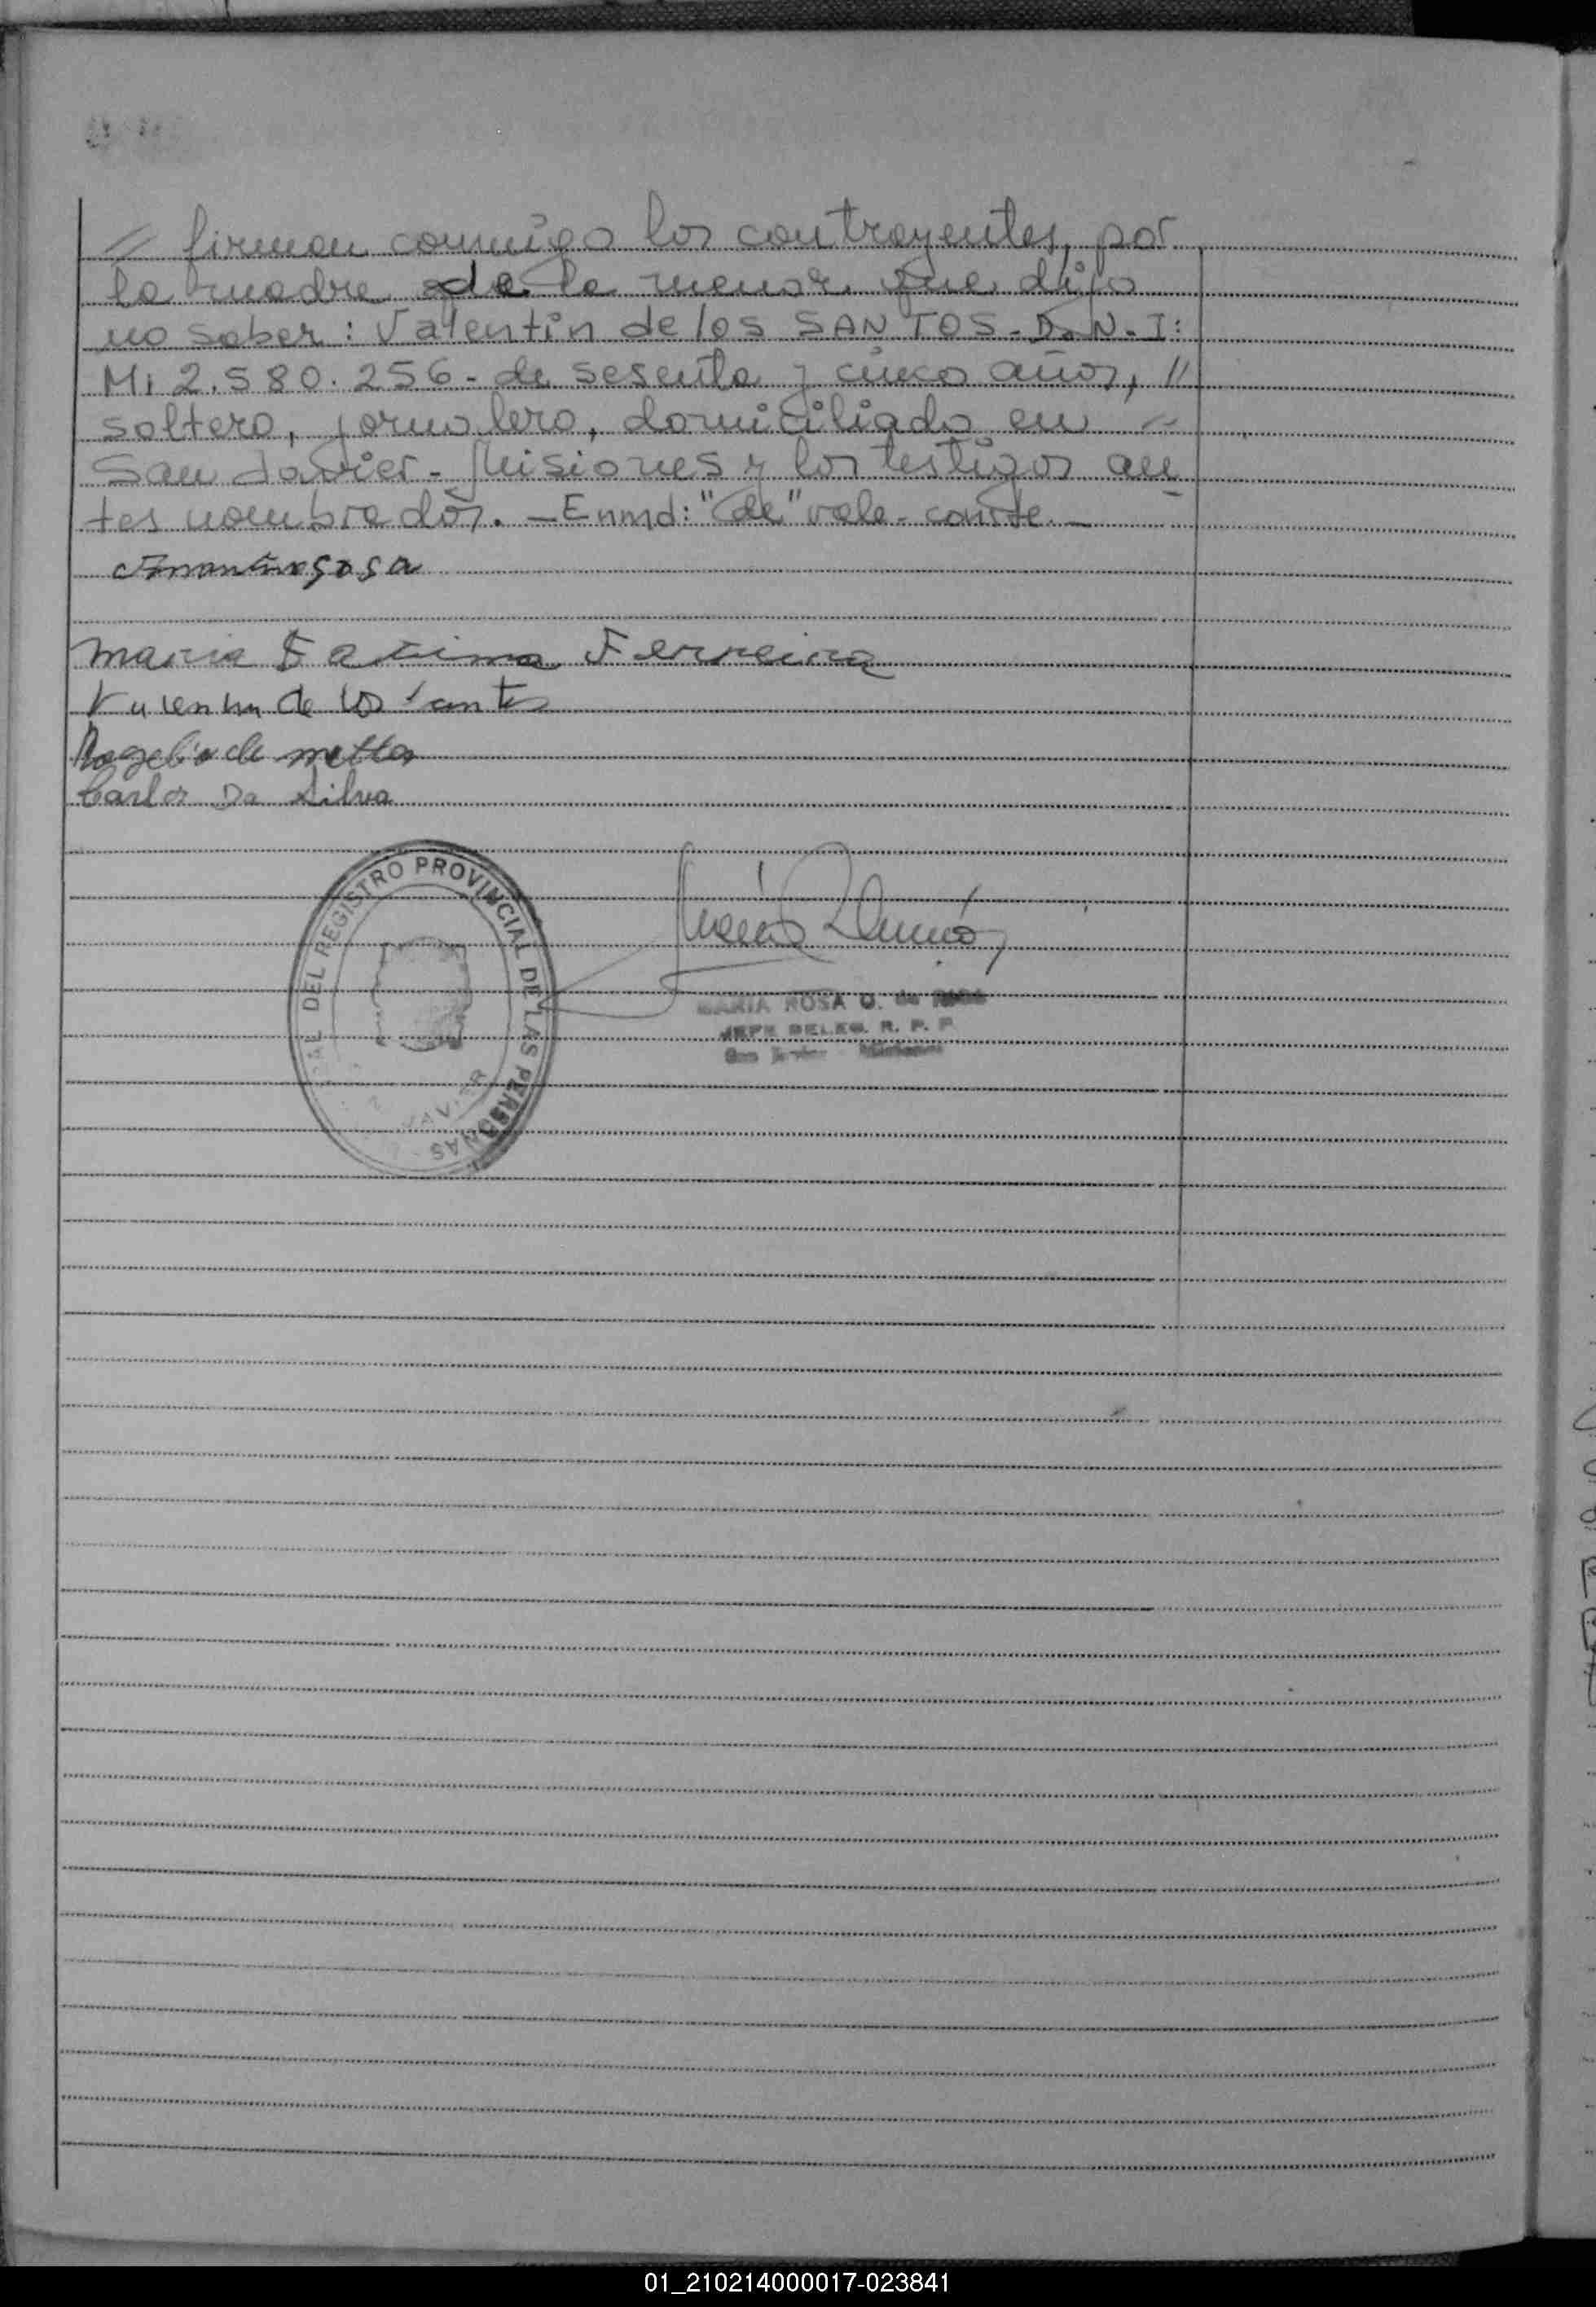 // firman conmigo los contrayentes, por
la madre de la menor que dijo
no saber: Valentín de los SANTOS - D.N.I:
M: 2.580.256 - de sesenta y cinco años, //
soltero, jornalero, domiciliado en //
San Javier - Misiones y los testigos an
tes nombrados. - Enmd: "de" vale - conste. -
Sosa
Maria Fatima Ferreira
Valentin de los Santos
Rogelio de mattos
Carlos Da Silva
DEL REGISTRO PROVINCIAL DE LAS PERSONAS
JAVIER
MARIA ROSA O. de
JEFE DELEG. R. P. P.
San Javier - Misiones
01_210214000017-023841